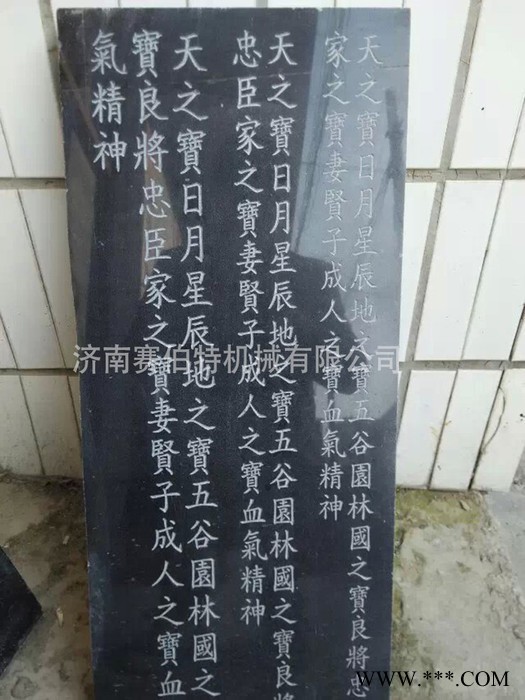 天之寶日月星辰地之寶五谷園林國之寶良將忠
家之寶妻賢子成人之寶血氣精神
天之寶日月星辰地之寶五谷園林國之寶良將
忠臣家之寶妻賢子成人之寶血氣精神
天之寶日月星辰地之寶五谷園林國之
寶良將忠臣家之寶妻賢子成人之寶血
氣精神
济南赛伯特机械有限公司
WWW.***.COM